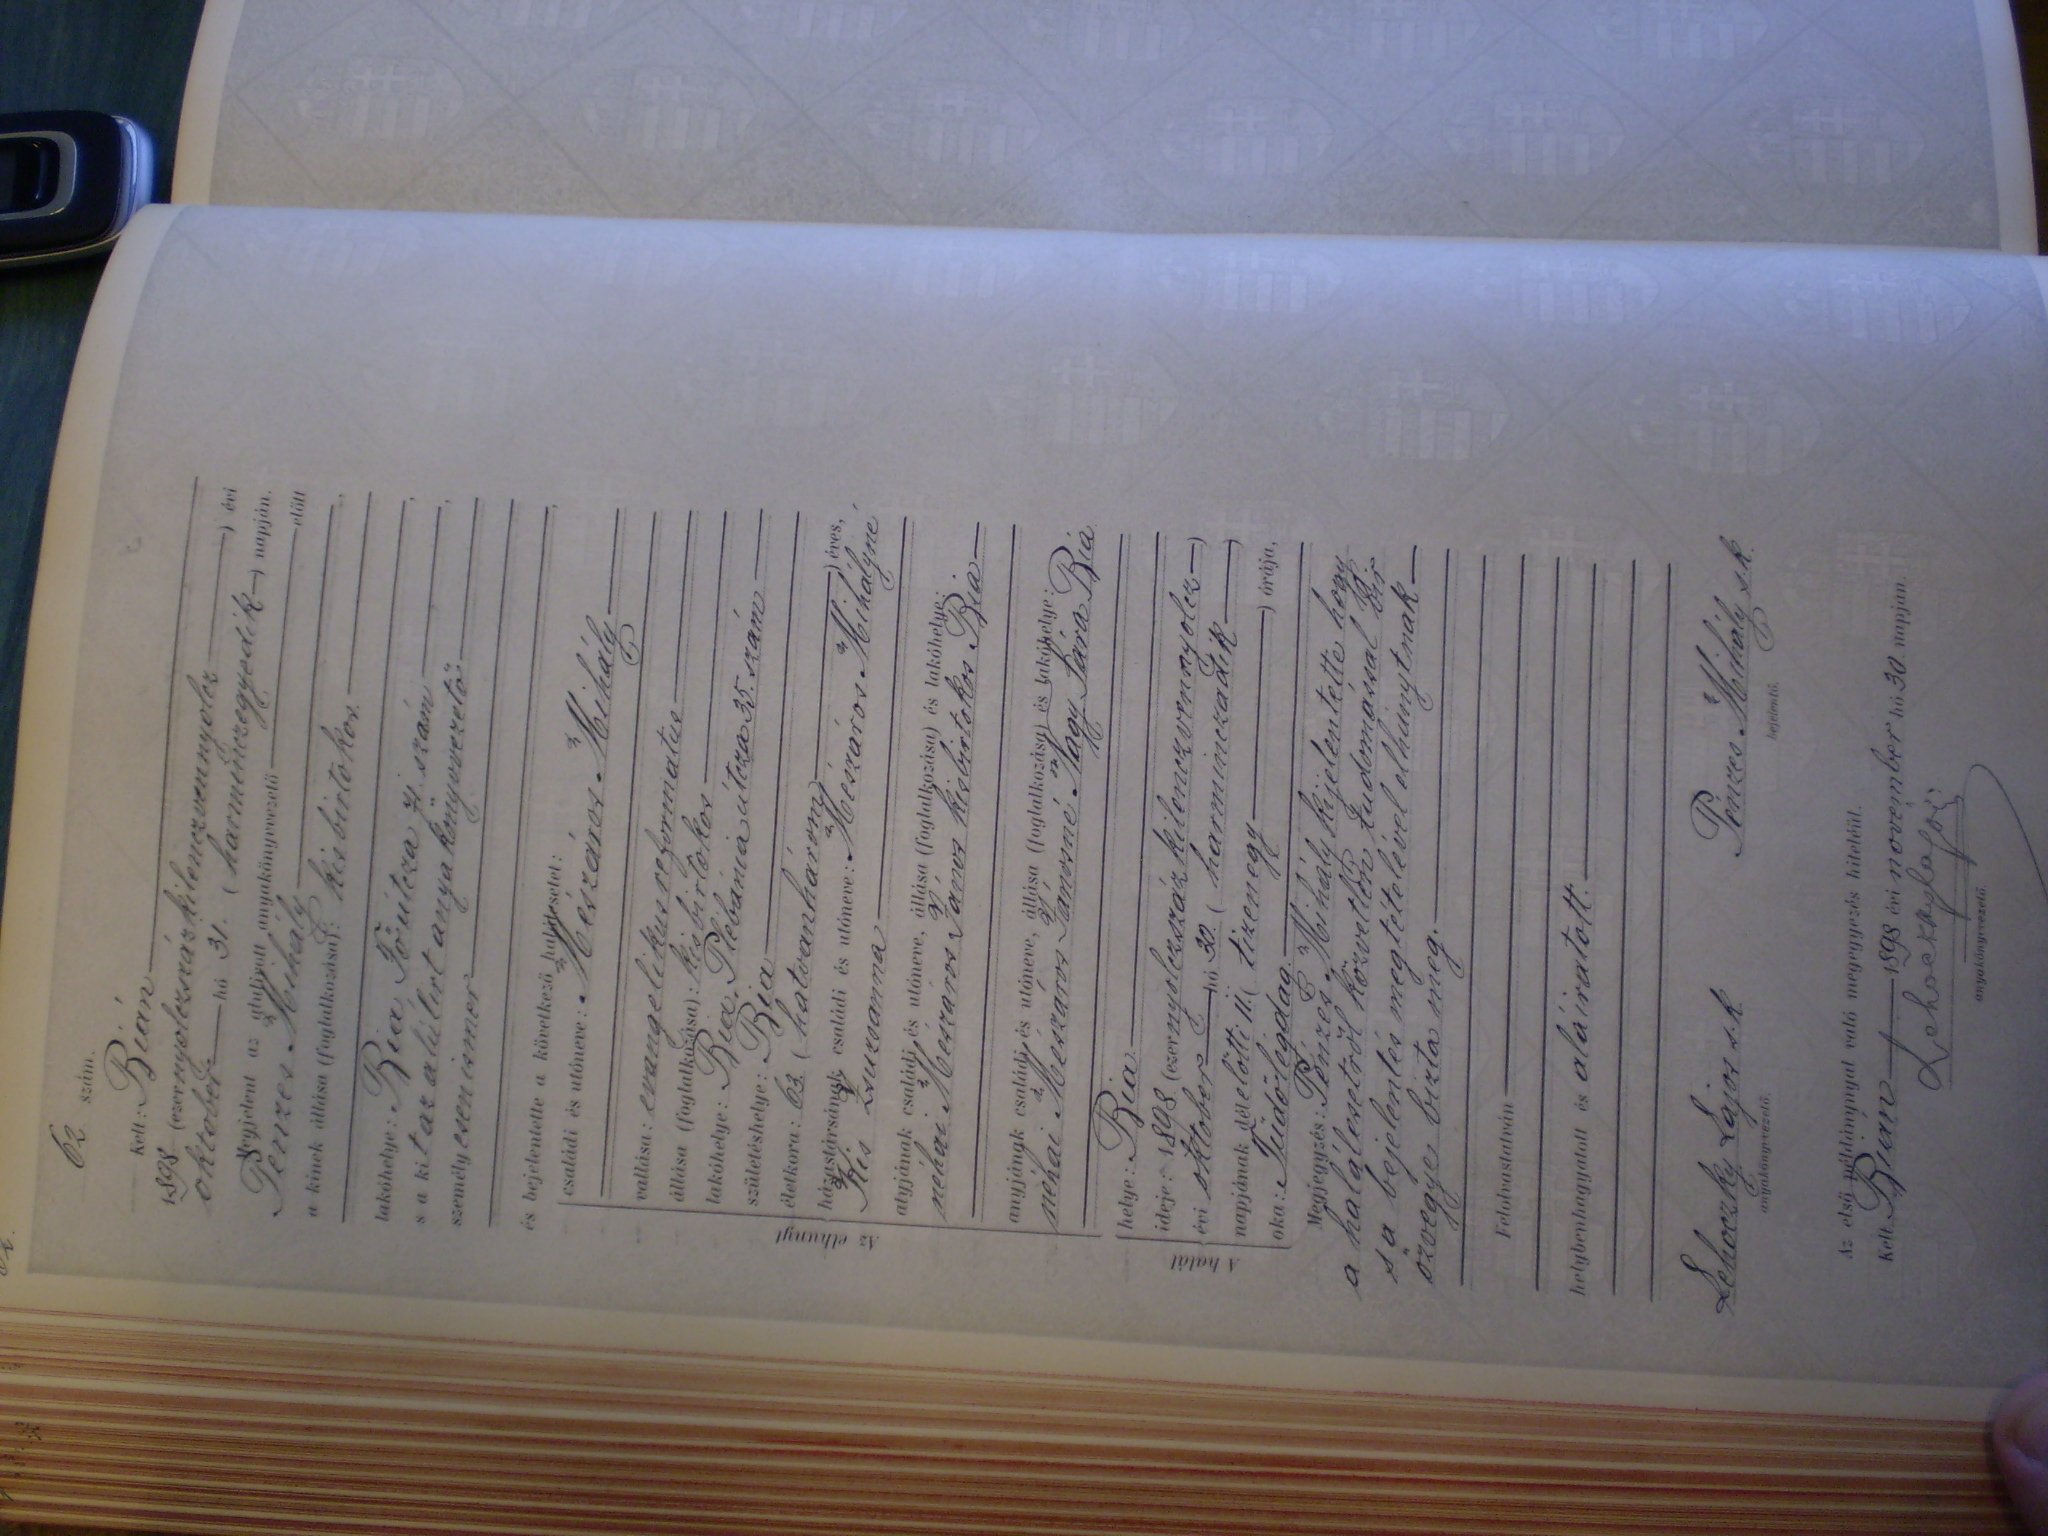 62. szám.
Kelt: Bián
1898 (ezernyolczszázkilenczvennyolcz) évi
október hó 31. (harminczegyedik) napján.
Megjelent az alulirott anyakönyvvezető előtt
Penzes Mihály
a kinek állása (foglalkozása): kisbirtokos,
lakóhelye: Bia Főútcza 71. szám,
s a kit az alulirt anyakönyvvezető
személyesen ismer
és bejelentette a következő halálesetet:
családi és utóneve: Mészáros Mihály
vallása: evangelikus reformatus
állása (foglalkozása): kisbirtokos
lakóhelye: Bia, Plébánia útcza 35. szám
születéshelye: Bia
életkora: 63. (hatvanhárom) éves,
házastársának családi és utóneve: Mészáros Mihályné
Kis Zsuzsanna
atyjának családi és utóneve, állása (foglalkozása) és lakóhelye:
néhai Mészáros János kisbirtokos Bia
anyjának családi és utóneve, állása (foglalkozása) és lakóhelye:
néhai Mészáros Jánosné Nagy Sára Bia
Az elhunyt
helye: Bia
ideje: 1898 (ezernyolczszázkilenczvennyolcz)
évi október hó 30. (harminczadik)
napjának délelőtti 11. (tizenegy) órája,
oka: Tüdőlégdag.
A halál
Megjegyzés: Pénzes Mihály kijelentette hogy
a halálesetről közvetlen tudomással bir
s a bejelentés megtételével elhunytnak
özvegye bizta meg.
Felolvastatván
helybenhagyatott és aláiratott.
Lehoczky Lajos s.k. Pénzes Mihály s.k.
anyakönyvvezető. bejelentő.
Az első példánynyal való megegyezés hiteléül.
Kelt Bián 1898 évi november hó 30 napján.
Lehoczky Lajos
anyakönyvvezető.